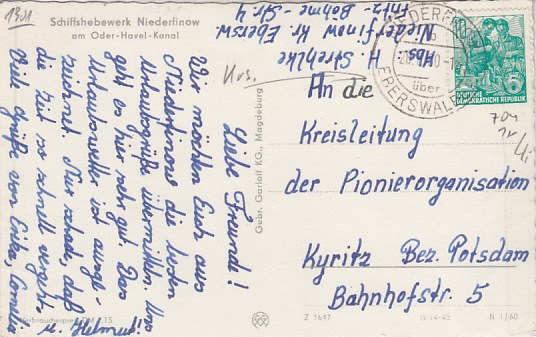 1901
Schiffshebewerk Niederfinow
am Oder-Havel-Kanal
Liebe Freunde!
Wir möchten Euch aus
Niederfinow die besten
Urlaubsgrüße übermitteln. Uns
geht es hier sehr gut. Das
Urlaubswetter ist ausge-
zeichnet. Nur schade, daß
die Zeit so schnell vergeht.
Viele Grüße von
u. Helmut!
Verbraucherpreis DM 0,15
Gebr. Garloff KG., Magdeburg
Abs. H. Strehlke
Niederfinow Kr. Ebersw.
Fritz-Böhme-Str. 4
Krs.
NIEDERFINOW
über
EBERSWALDE
DEUTSCHE
DEMOKRATISCHE REPUBLIK
5
An die
Kreisleitung
der Pionierorganisation
Kyritz Bez. Potsdam
Bahnhofstr. 5
Z 1647
IV-14-45
N 1/60